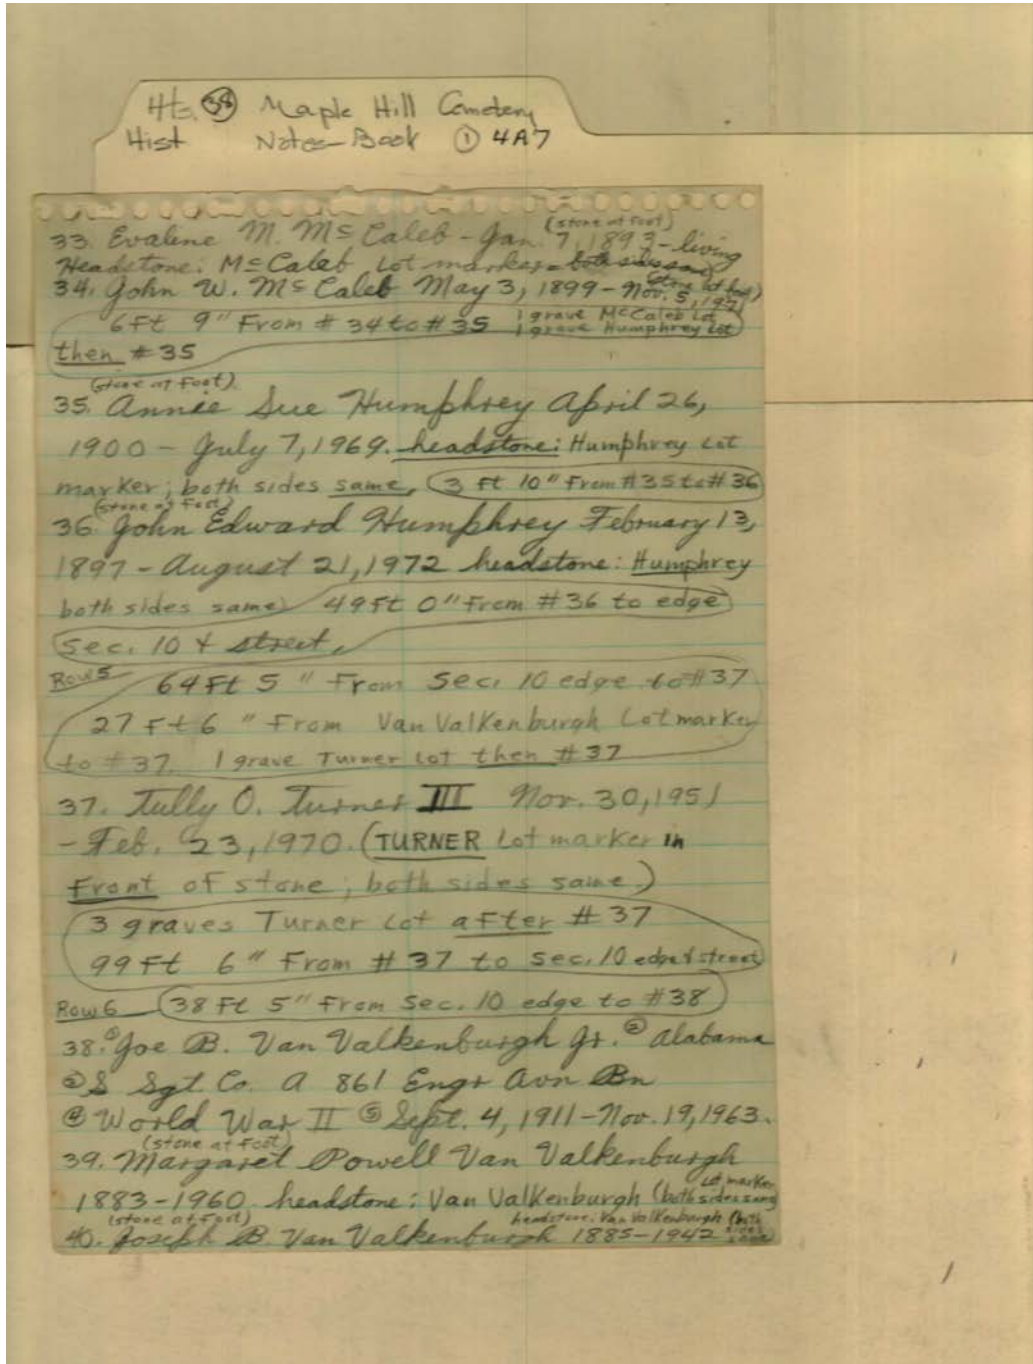 Hts. 38 Maple Hill Cemetery
Hist Notes-Book ① 4A7
(stone at foot)
33. Evaline M. McCaleb - Jan. 7, 1893 - living
Headstone: McCaleb Lot marker - both sides same
(stone at foot)
34. John W. McCaleb May 3, 1899 - Nov. 5, 197
6 ft 9" From # 34 to # 35 1 grave McCaleb Lot
1 grave Humphrey Lot
then # 35
(stone at foot).
35. Annie Sue Humphrey April 26,
1900 - July 7, 1969. headstone: Humphrey Lot
marker; both sides same, 3 ft 10" From #35 to #36
(stone at foot)
36. John Edward Humphrey February 13,
1897 - August 21, 1972 headstone: Humphrey
both sides same) 49 ft 0" From #36 to edge
Sec. 10 & street.
Row 5 64 Ft 5 " From Sec. 10 edge to #37
27 Ft 6 " From Van Valkenburgh Lot marker
to #37. 1 grave Turner Lot then #37
37. Tully O. Turner III Nov. 30, 1951
- Feb. 23, 1970. (TURNER Lot marker in
Front of stone; both sides same)
3 graves Turner Lot after #37
99 Ft 6" From #37 to Sec. 10 edge & street
Row 6 38 Ft 5" From Sec. 10 edge to #38
38. ① Joe B. Van Valkenburgh Jr. ② Alabama
③ S Sgt Co. A 861 Engr Avn Bn
④ World War II ⑤ Sept. 4, 1911 - Nov. 19, 1963.
(stone at foot)
39. Margaret Powell Van Valkenburgh
1883-1960. headstone: Van Valkenburgh Lot marker (both sides same)
(stone at foot) headstone: Van Valkenburgh (both sides same)
40. Joseph B. Van Valkenburgh 1885-1942